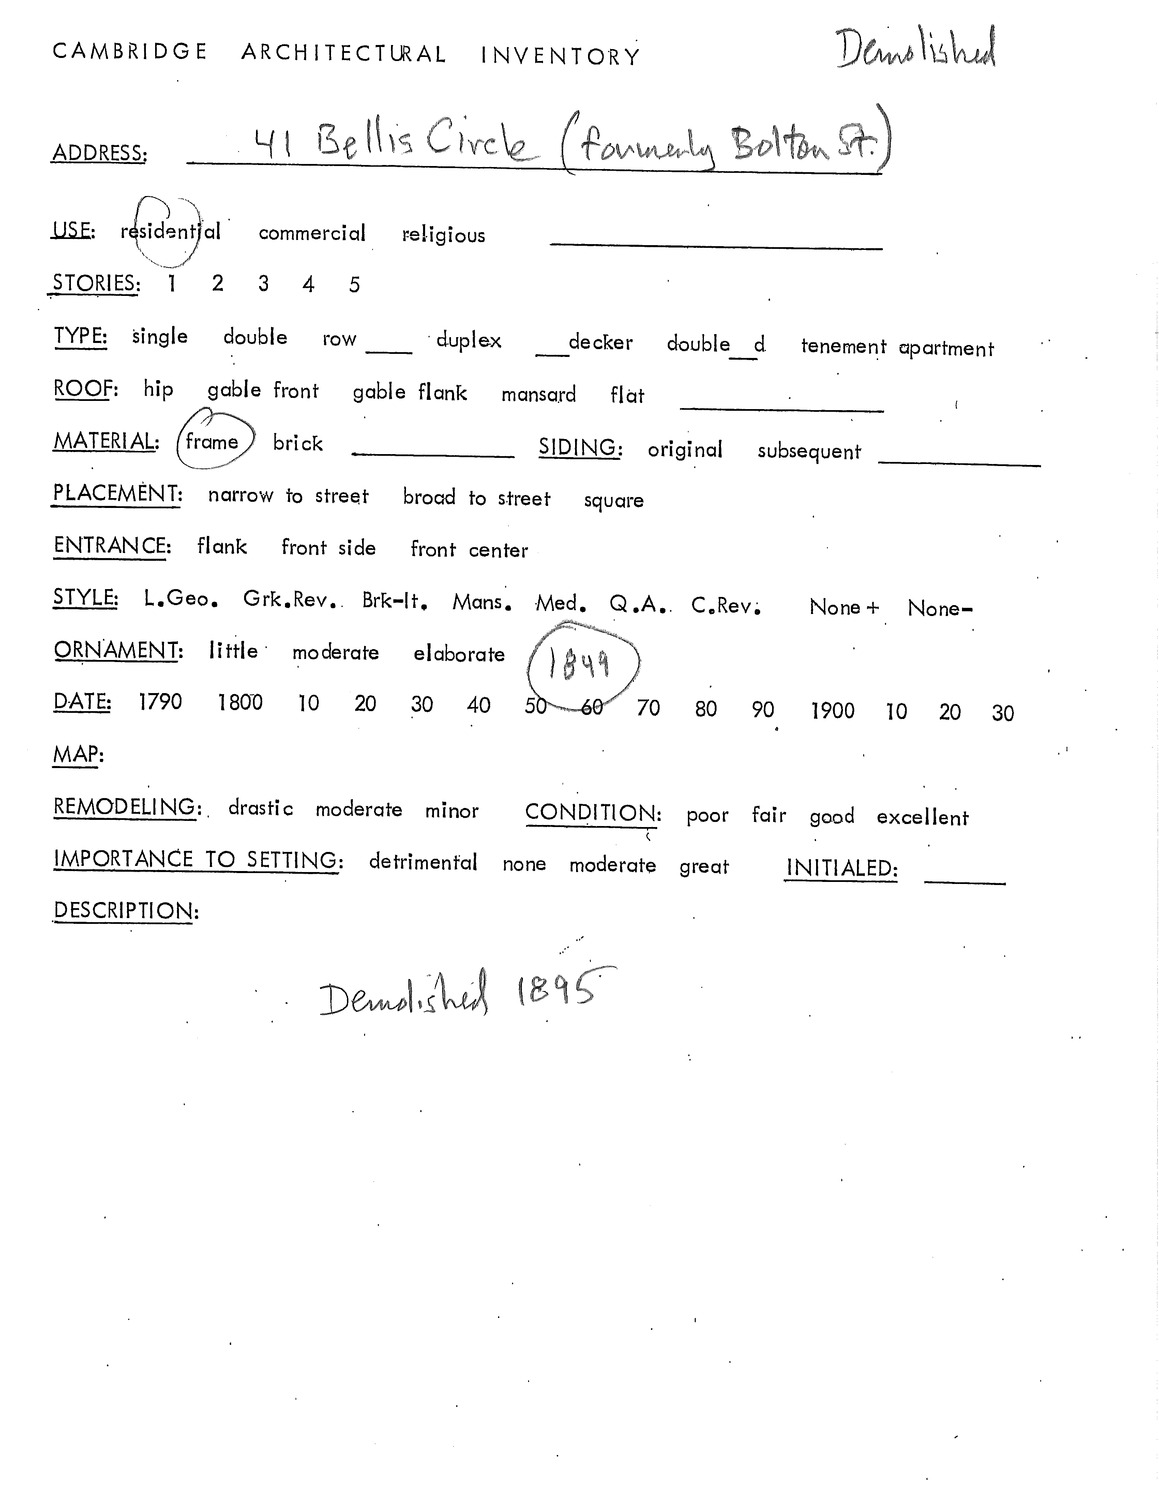 CAMBRIDGE ARCHITECTURAL INVENTORY Demolished
ADDRESS: 41 Bellis Circle (formerly Bolton St.)
USE: residential commercial religious
STORIES: 1 2 3 4 5
TYPE: single double row ____ duplex ___decker double__d tenement apartment
ROOF: hip gable front gable flank mansard flat
MATERIAL: frame brick SIDING: original subsequent
PLACEMENT: narrow to street broad to street square
ENTRANCE: flank front side front center
STYLE: L.Geo. Grk.Rev. Brk-It. Mans. Med. Q.A. C.Rev. None+ None-
ORNAMENT: little moderate elaborate 1849
DATE: 1790 1800 10 20 30 40 50 60 70 80 90 1900 10 20 30
MAP:
REMODELING: drastic moderate minor CONDITION: poor fair good excellent
IMPORTANCE TO SETTING: detrimental none moderate great INITIALED:
DESCRIPTION:
Demolished 1895